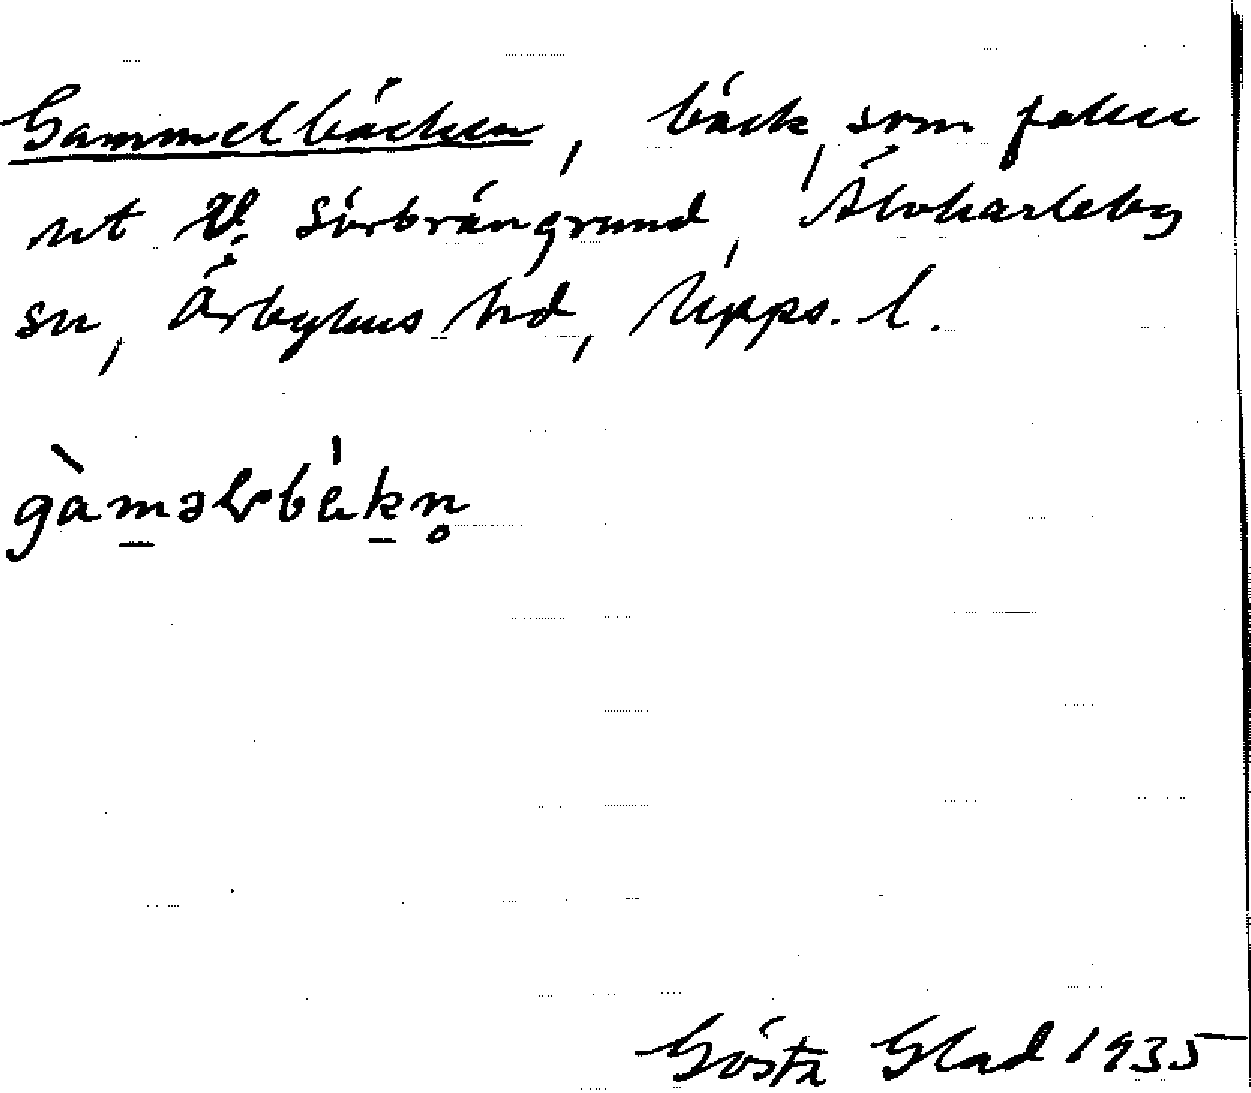 Gammelbäcken, bäck, som faller
ut V. Sörbrängrund, Älvkarleby
sn, Örbyhus hd, Upps. l.
gàmalbäkn̥
Gösta Glad 1935